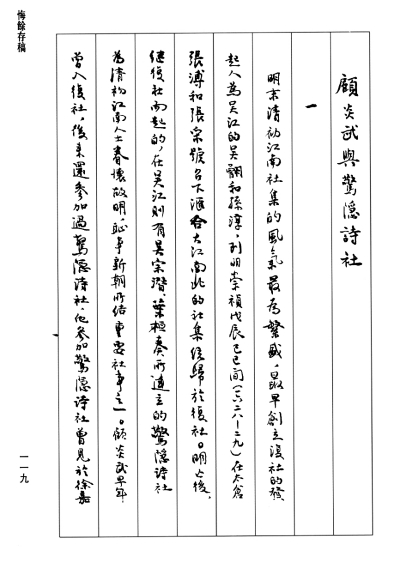 悔餘存稿
顧炎武與驚隱詩社
一
明末清初江南社集的風氣最為繁盛，最早創立復社的發
起人為吳江的吳𦒍和孫淳，到明崇禎戊辰己巳間（一六二八—二九）在太倉
張溥和張采號召下滙合大江南北的社集統歸於復社。明亡後，
繼復社而起的，在吳江則有吳宗潛、葉桓奏所建立的驚隱詩社
為清初江南人士眷懷故明，恥事新朝所結重要社事之一。顧炎武早年
曾入復社，後來還參加過驚隱詩社，他參加驚隱詩社曾見於徐嘉
一一九